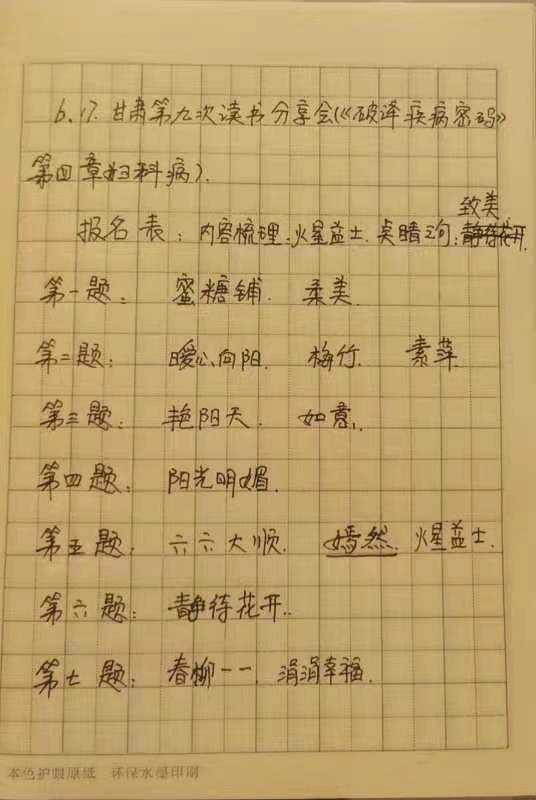 6.17.甘肃第九次读书分享会(《破译疾病密码》
第四章妇科病).
致美
报名表：内容梳理:火星益士.点睛之句:静待花开.
第一题：蜜糖铺.柔美.
第二题：暖心向阳.梅竹.素萍
第三题：艳阳天.如意.
第四题：阳光明媚.
第五题：六六大顺.嫣然.火星益士.
第六题：静待花开..
第七题：春柳一一.涓涓幸福.
本色护眼原纸 环保水墨印刷